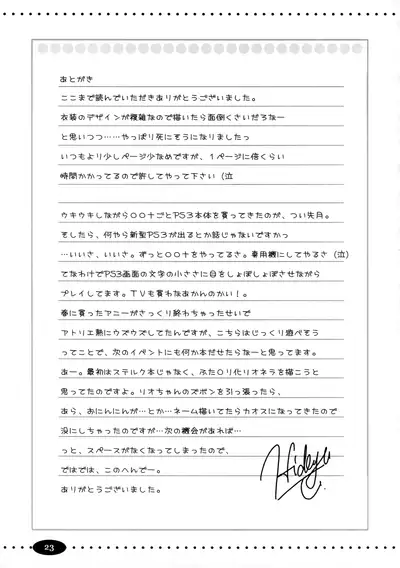 あとがき
ここまで読んでいただきありがとうございました。
衣装のデザインが複雑なので描いたら面倒くさいだろなー
と思いつつ……やっぱり死にそうになりましたっ
いつもより少しページ少なめですが、１ページに倍くらい
時間かかってるので許してやって下さい（泣
ウキウキしながら〇〇＋ごとPS3本体を買ってきたのが、つい先月。
そしたら、何やら新型PS3が出るとか話じゃないですかっ
…いいさ、いいさ。ずっと〇〇＋をやるさ。専用機にしてやるさ（泣）
てなわけでPS3画面の文字の小ささに目をしょぼしょぼさせながら
プレイしてます。TVも買わなあかんのかい！。
春に買ったアニーがさっくり終わちゃったせいで
アトリエ熱にウズウズしてたんですが、こちらはじっくり遊べそう
ってことで、次のイベントにも何か本だせたらなーと思ってます。
あー。最初はステルク本じゃなく、ふた〇リ化リオネラを描こう
と思ってたのですよ。リオちゃんのズボンを引っ張ったら、
あら、おにんにんが…とか…ネーム描いてたらカオスになってきたので
没にしちゃったのですが…次の機会があれば…
っと、スペースがなくなってしまったので、
ではでは、このへんでー。
ありがとうございました。
Hideyu
23